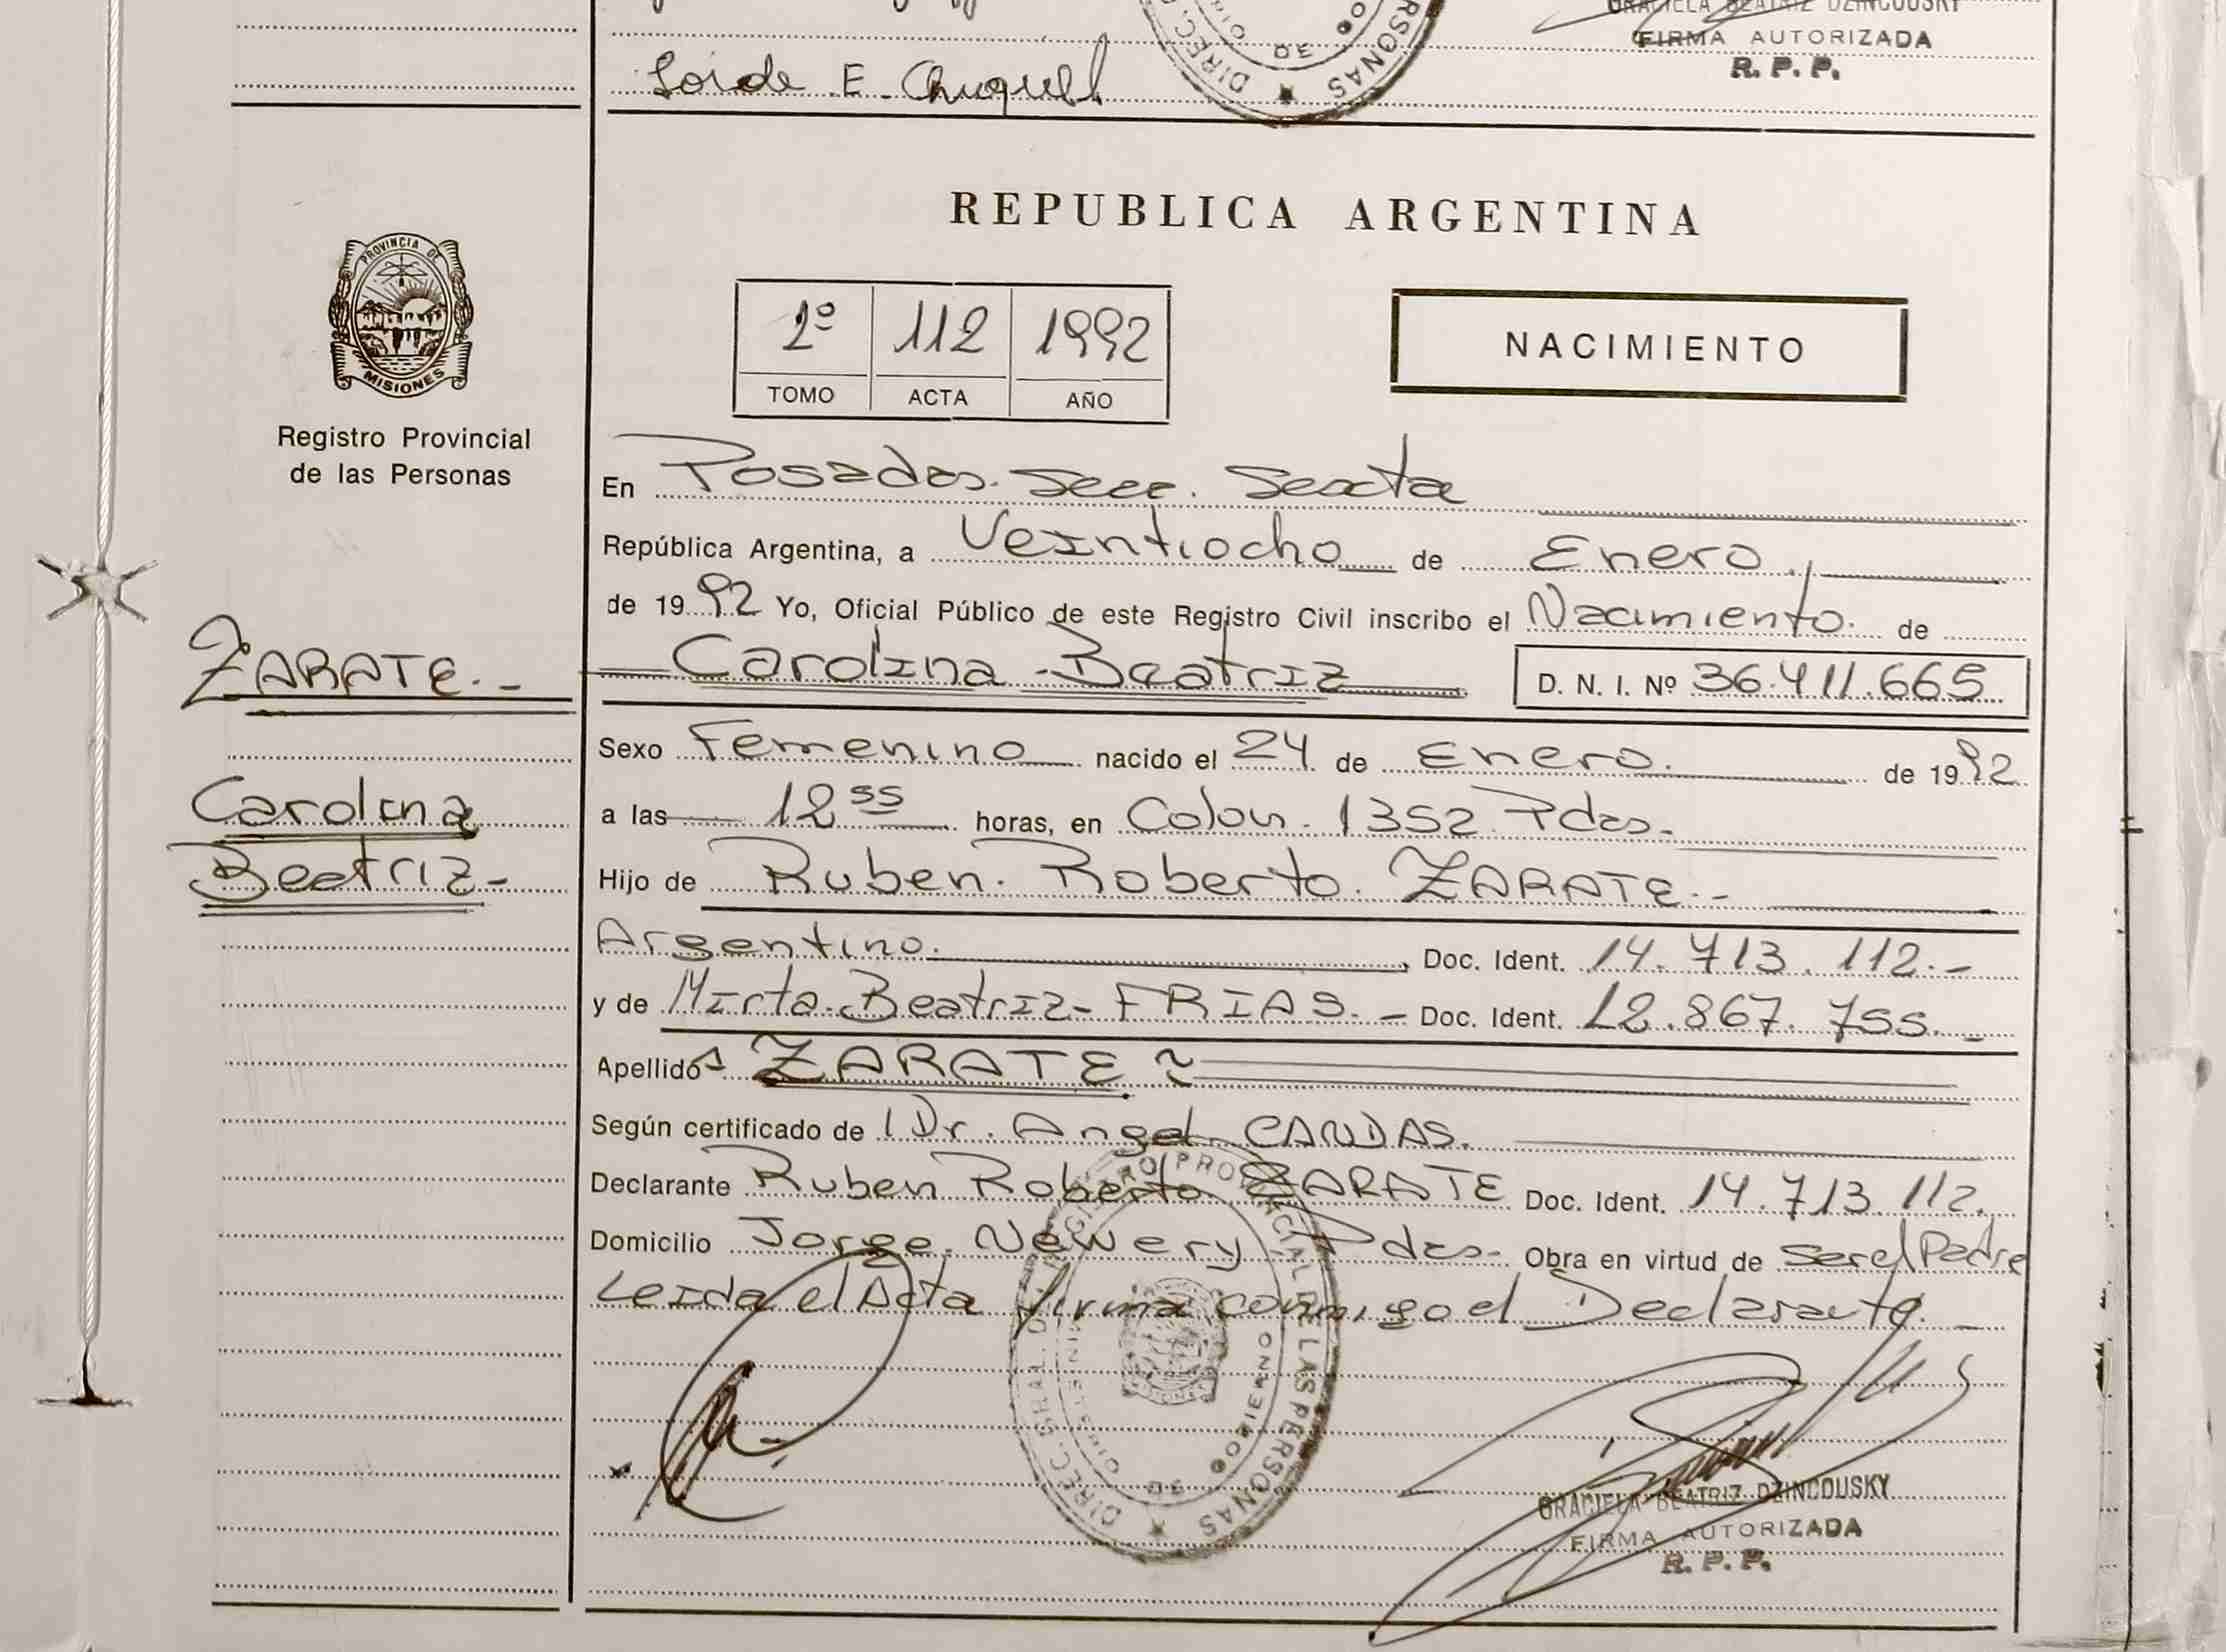 GRACIELA BEATRIZ DZINCOUSKY
FIRMA AUTORIZADA
R. P. P.
DIREC. PERSONAS
DE
Loide E. Chuquel
PROVINCIA DE
MISIONES
Registro Provincial
de las Personas
ZARATE.-
Carolina
Beatriz-
REPUBLICA ARGENTINA
2º 112 1992
TOMO ACTA AÑO
NACIMIENTO
En Posadas. Secc. Sexta
República Argentina, a Veintiocho de Enero.,
de 1992 Yo, Oficial Público de este Registro Civil inscribo el Nacimiento. de
Carolina Beatriz D. N. I. Nº 36.411.665
Sexo Femenino nacido el 24 de Enero. de 1992.
a las 12 55 horas, en Colon. 1352 Pdas.
Hijo de Ruben. Roberto. ZARATE.-
Argentino. , Doc. Ident. 14. 713. 112.-
y de Mirta. Beatriz- FRIAS. - Doc. Ident. 12.867. 755.-
Apellido ZARATE ~
Según certificado de Dr. Angel CANDAS.
Declarante Ruben Roberto ZARATE Doc. Ident. 14.713.112.
Domicilio Jorge. Newery Pdas- Obra en virtud de ser el Padre
Leida el Acta firma conmigo el Declarante. -
DIREC. GRAL. DEL REGISTRO PROVINCIAL DE LAS PERSONAS
MINISTERIO DE GOBIERNO
GRACIELA BEATRIZ DZINCOUSKY
FIRMA AUTORIZADA
R. P. P.